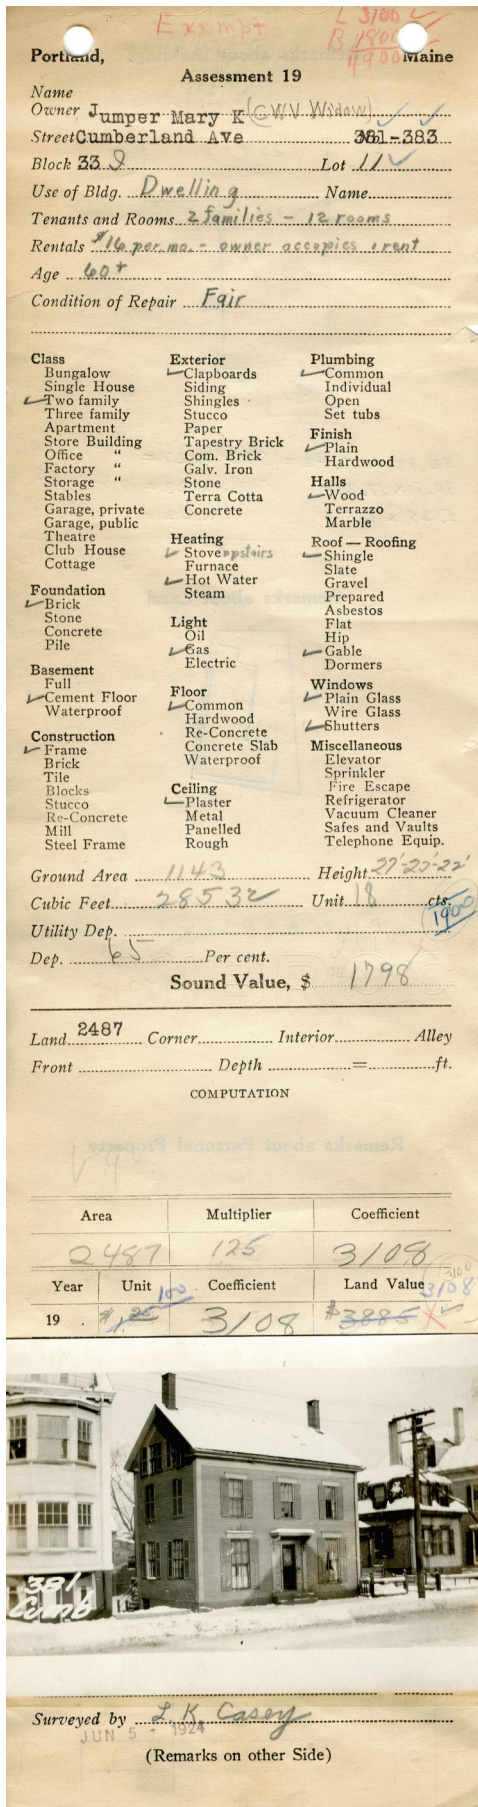 Exempt
L 3100
B 1800
4900
Portland, Maine
Assessment 19
Name
Owner Jumper Mary K (CWV Widow)
Street Cumberland Ave No. 381-383
Block 33 I Lot 11
Use of Bldg. Dwelling Name
Tenants and Rooms 2 families - 12 rooms
Rentals $16 per.mo. - owner occupies 1 rent
Age 60+
Condition of Repair Fair
Class
Bungalow
Single House
Two family
Three family
Apartment
Store Building
Office "
Factory "
Storage "
Stables
Garage, private
Garage, public
Theatre
Club House
Cottage
Foundation
Brick
Stone
Concrete
Pile
Basement
Full
Cement Floor
Waterproof
Construction
Frame
Brick
Tile
Blocks
Stucco
Re-Concrete
Mill
Steel Frame
Exterior
Clapboards
Siding
Shingles
Stucco
Paper
Tapestry Brick
Com. Brick
Galv. Iron
Stone
Terra Cotta
Concrete
Heating
Stove upstairs
Furnace
Hot Water
Steam
Light
Oil
Gas
Electric
Floor
Common
Hardwood
Re-Concrete
Concrete Slab
Waterproof
Ceiling
Plaster
Metal
Panelled
Rough
Plumbing
Common
Individual
Open
Set tubs
Finish
Plain
Hardwood
Halls
Wood
Terrazzo
Marble
Roof — Roofing
Shingle
Slate
Gravel
Prepared
Asbestos
Flat
Hip
Gable
Dormers
Windows
Plain Glass
Wire Glass
Shutters
Miscellaneous
Elevator
Sprinkler
Fire Escape
Refrigerator
Vacuum Cleaner
Safes and Vaults
Telephone Equip.
Ground Area 1143 Height 27'-25'-22'
Cubic Feet 28532 Unit 18 cts.
1900
Utility Dep.
Dep. 65 Per cent.
Sound Value, $ 1798
Land 2487 Corner Interior Alley
Front Depth = ft.
COMPUTATION
Area Multiplier Coefficient
2487 125 3108
Year Unit Coefficient Land Value
100 3100 3108
19 . $1.25 3108 $3885
381
Cumb
Surveyed by L. K. Casey
JUN 5 - 1924
(Remarks on other Side)